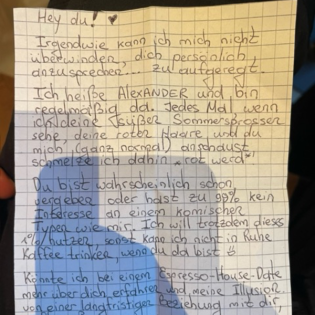 Hey du! ♥
Irgendwie kann ich mich nicht
überwinden, dich persönlich
anzusprechen... zu aufgeregt.
Ich heiße ALEXANDER und bin
regelmäßig da. Jedes Mal wenn
ich deine süßen Sommersprossen
sehe, deine roten Haare und du
mich (ganz normal) anschaust,
schmelze ich dahin *rot werd*
Du bist wahrscheinlich schon
vergeben oder hast zu 99% kein
Interesse an einem komischen
Typen wie mir. Ich will trotzdem dieses
1% nutzen, sonst kann ich nicht in Ruhe
Kaffee trinken, wenn du da bist
Könnte ich bei einem Espresso-House-Date
mehr über dich erfahren und meine Illusion
von einer langfristigen Beziehung mit dir,